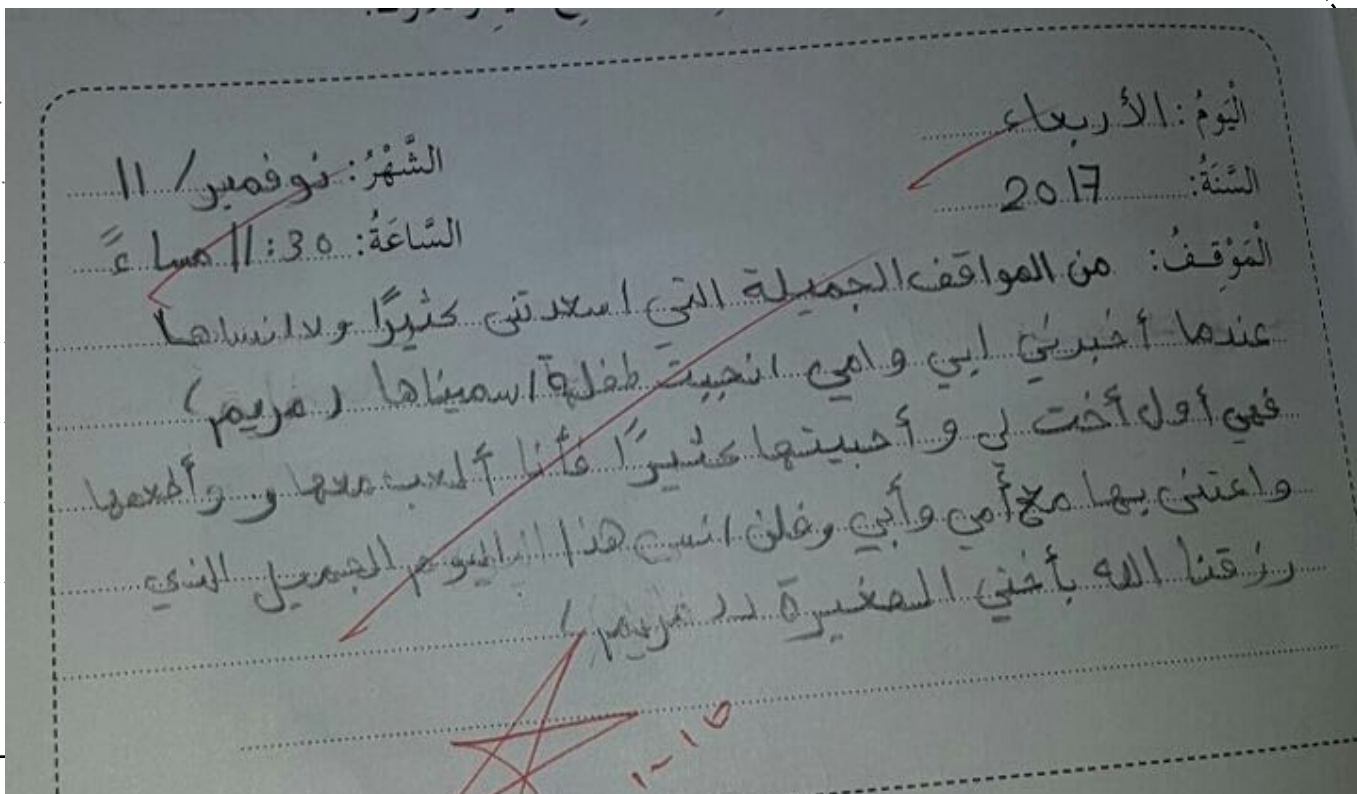 اَلْيَوْمُ: الأربعاء
الشَّهْرُ: نوفمبر / 11
السَّنَةُ: 2017
السَّاعَةُ: 11:30 مساءً
الْمَوْقِفُ: من المواقف الجميلة التي اسعدتني كثيرًا ولا انساها
عندما أخبرني ابي وامي انجبت طفلة اسميناها (مريم)
فهي أول أخت لي و أحبيتها كثيرًا فأنا ألعب معها و وأطعمها
واعتني بها مع أمي وأبي وفلن انسى هذا اليوم الجميل الذي
رزقنا الله بأختي الصغيرة (( مريم )
١٥-١